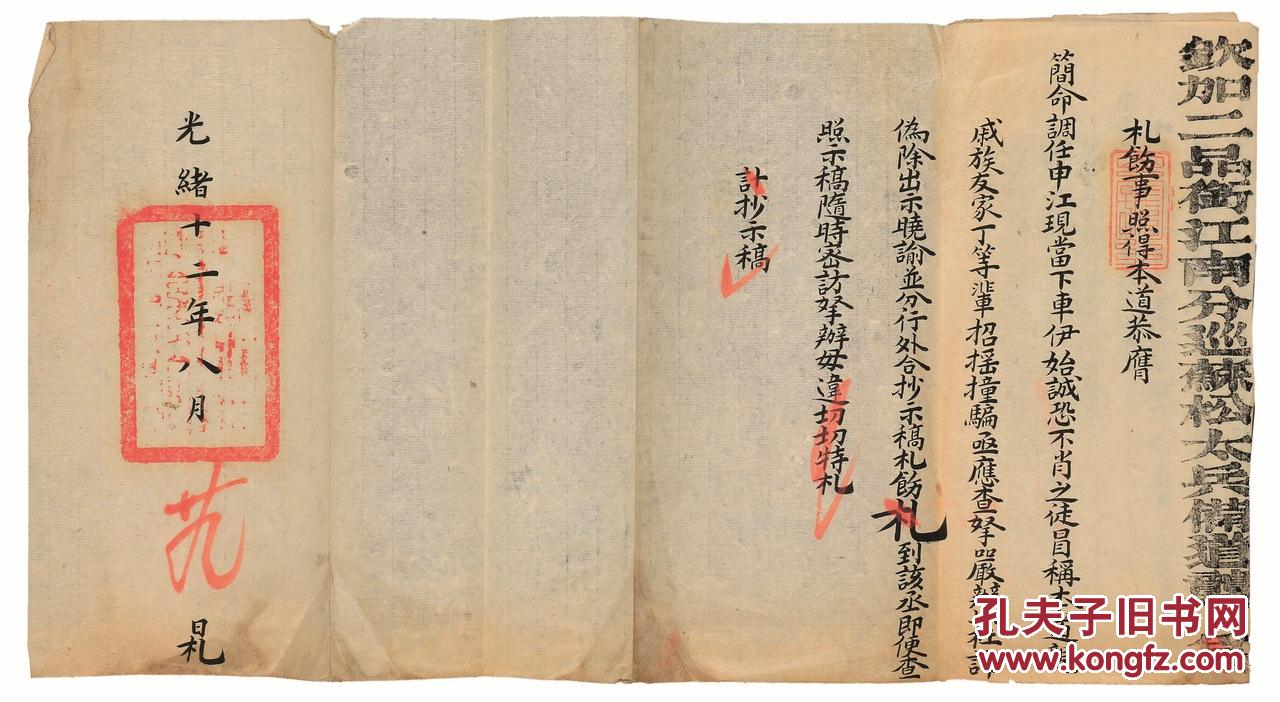 欽加二品銜江南分巡蘇松太兵備道
札飭事照得本道恭膺
簡命調任申江現當下車伊始誠恐不肖之徒冒稱本道親
戚族友家丁等輩招摇撞騙亟應查拏嚴辦以杜詐
偽除出示曉諭並分行外合抄示稿札飭札到該丞即便查
照示稿隨時密訪拏辦毋違切切特札
計抄示稿
光緒十二年八月
廿九
日札
孔夫子旧书网
www.kongfz.com